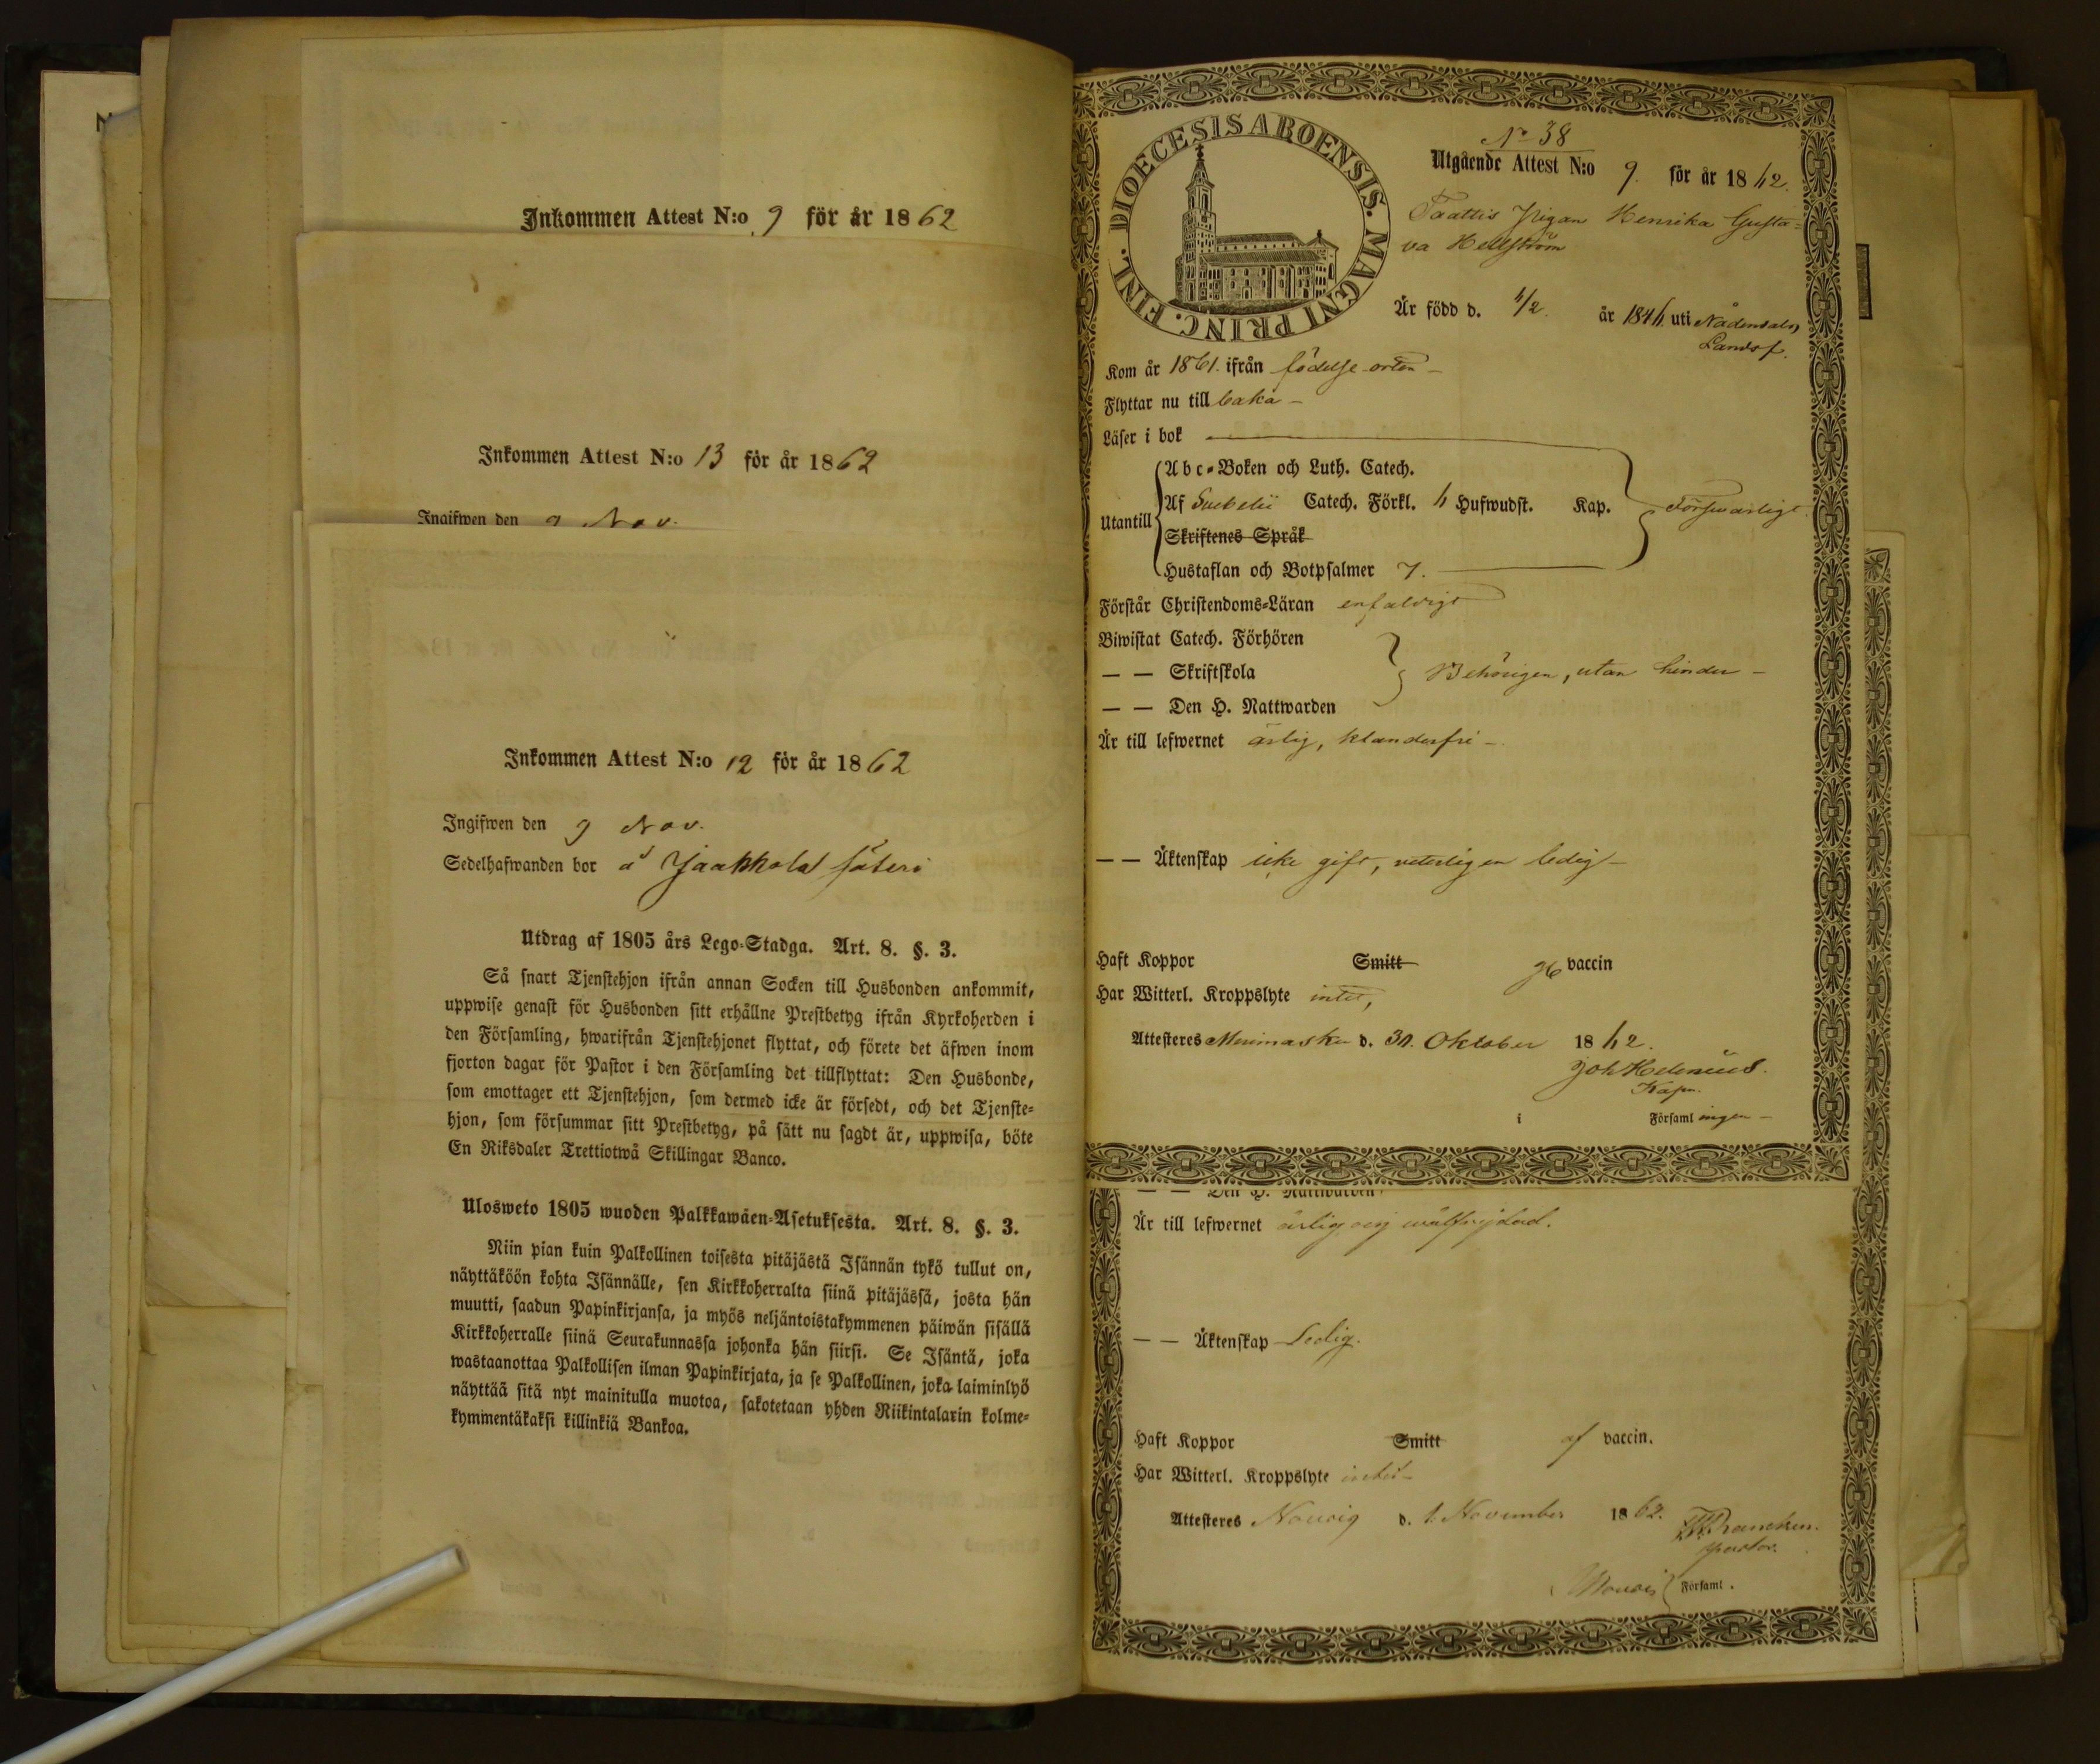 Inkommen Attest N:o 9 för år 1862
Inkommen Attest N:o 13 för år 1862
Ingifwen den 9 Nov.
Inkommen Attest N:o 12 för år 1862
Ingifwen den 9 Nov.
Sedelhafwanden bor å Jaakkola säteri
Utdrag af 1805 års Lego-Stadga. Art. 8. §. 3.
Så snart Tjenstehjon ifrån annan Socken till Husbonden ankommit,
uppwise genast för Husbonden sitt erhållne Prestbetyg ifrån Kyrkoherden i
den Församling, hwarifrån Tjenstehjonet flyttat, och förete det äfwen inom
fjorton dagar för Pastor i den Församling det tillflyttat: Den Husbonde,
som emottager ett Tjenstehjon, som dermed icke är försedt, och det Tjenste-
hjon, som försummar sitt Prestbetyg, på sätt nu sagdt är, uppwisa, böte
En Riksdaler Trettiotwå Skillingar Banco.
Ulosweto 1805 wuoden Palkkawäen-Asetuksesta. Art. 8. §. 3.
Niin pian kuin Palkollinen toisesta pitäjästä Isännän tykö tullut on,
näyttäköön kohta Isännälle, sen Kirkkoherralta siinä pitäjässä, josta hän
muutti, saadun Papinkirjansa, ja myös neljäntoistakymmenen päiwän sisällä
Kirkkoherralle siinä Seurakunnassa johonka hän siirsi. Se Isäntä, joka
wastaanottaa Palkollisen ilman Papinkirjata, ja se Palkollinen, joka laiminlyö
näyttää sitä nyt mainitulla muotoa, sakotetaan yhden Riikintalarin kolme-
kymmentäkaksi killinkiä Bankoa.
DIOECESIS ABOENSIS. MAGNI PRINC. FINL.
No 38
Utgående Attest N:o 9. för år 1862.
Taattis Pigan Henrika Gusta-
va Hellström
Är född d. 4/2. år 184 uti Nådendals
Landsf.
Kom år 1861. ifrån födelse orten -
Flyttar nu till baka -
Läser i bok
Abc-Boken och Luth. Catech.
Utantill Af Svebelii Catech. Förkl. Hufwudst. Kap. Försvarligt
Skriftenes Språk
Hustaflan och Botpsalmer 7.
Förstår Christendoms-Läran enfaldigt
Biwistat Catech. Förhören
— — Skriftskola Behörigen, utan hinder -
— — Den H. Nattwarden
Är till lefwernet ärlig, klanderfri -
— — Äktenskap icke gift, veterligen ledig -
Haft Koppor Smitt vaccin
Har Witterl. Kroppslyte intet,
Attesteres Merimasku d. 30. Oktober 1862.
Joh Helenius.
Kapn.
i Församlingen -
— — Den H. Nattwarden
Är till lefwernet ärlig och wälfrejdad.
— — Äktenskap Ledig.
Haft Koppor Smitt af vaccin.
Har Witterl. Kroppslyte intet -
Attesteres Nousis d. 1. November 1862.
Pastor.
Nousis Församl.